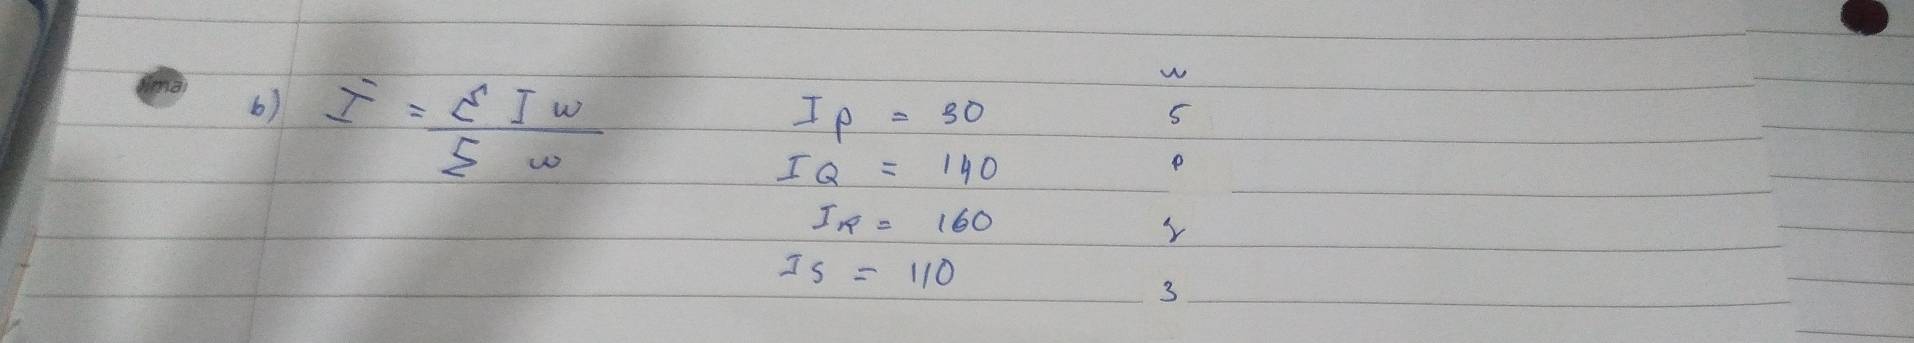 w
b) Ī = Σ I w / Σ w
I P = 90 5
I Q = 140 P
I R = 160
I S = 110 3